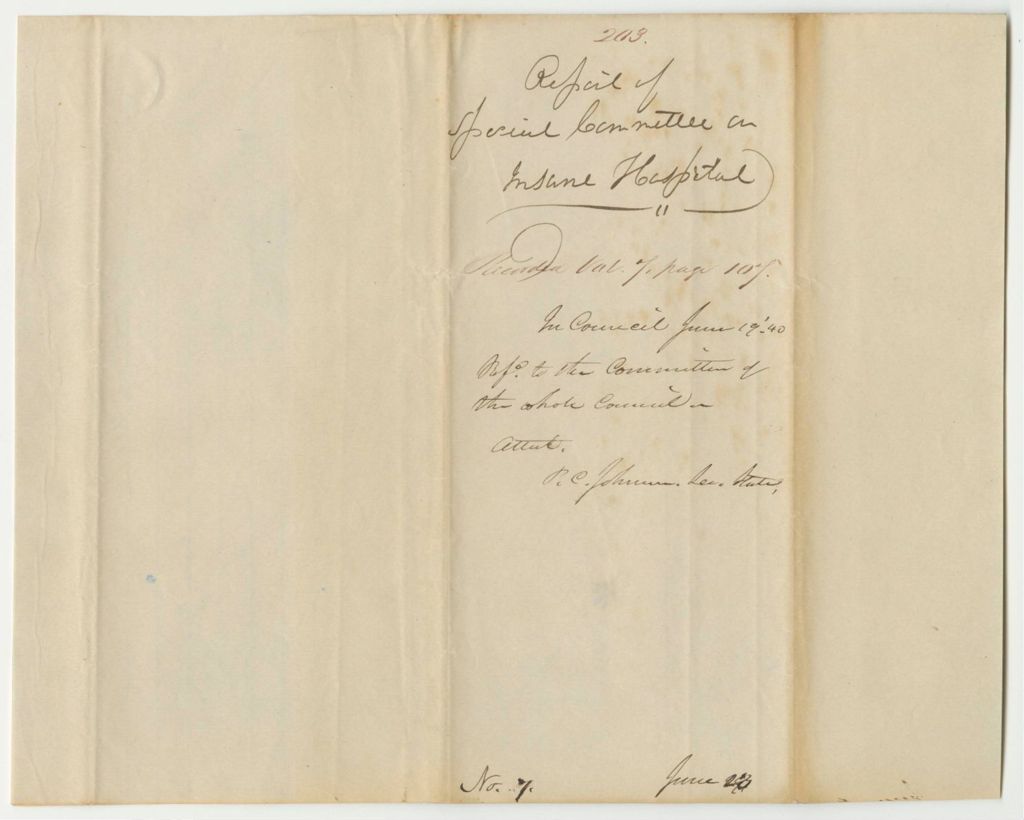 203.
Report of
Special Committee on
Insane Hospital
"
Recorded Vol. 7, page 107.
In Council June 19' 40
Refd. to the Committee of
the whole Council
Attest.
P. C. Johnson. Sec. State,
No. 7.
June